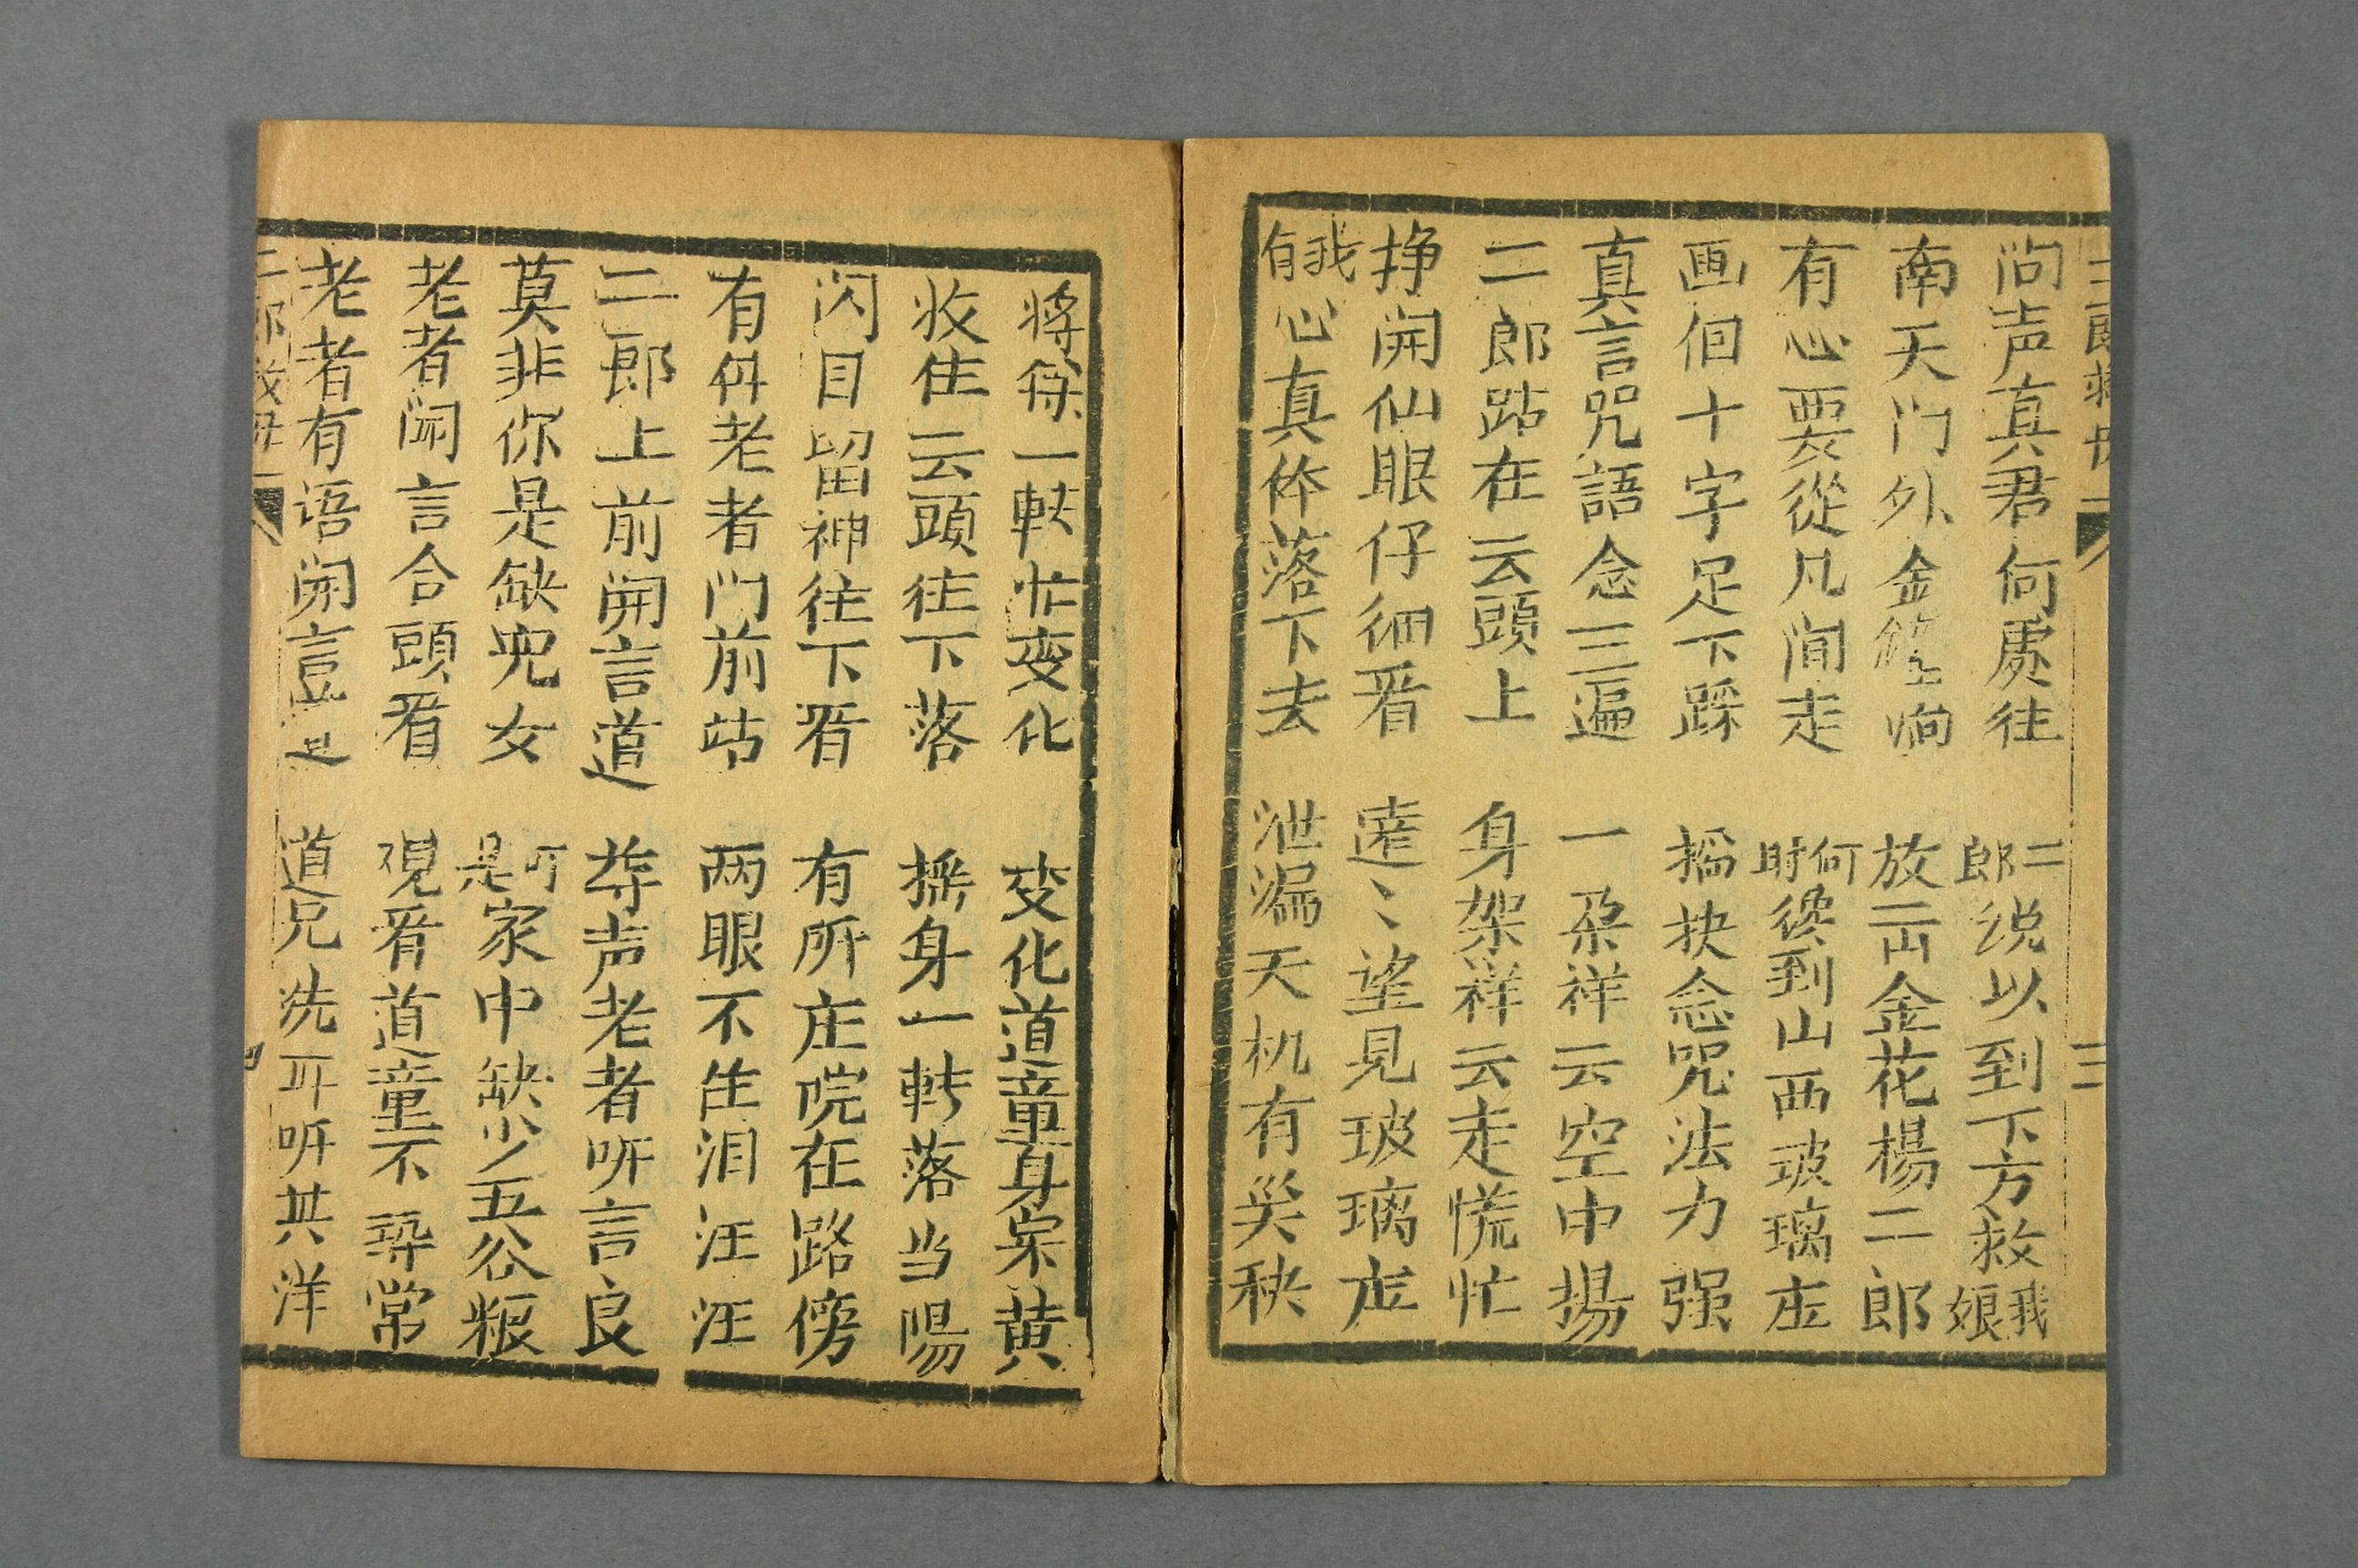 二郎救母 三
问声真君何處往 二郎说以到下方救我娘
南天门外金 响 放出金花楊二郎
有心要從凡间走 何时後到山西玻璃庄
画佪十字足下踩 搯抉念咒法力强
真言咒語念三遍 一朶祥云空中揚
二郎跕在云頭上 身架祥云走慌忙
挣開仙眼仔細看 遠〻望見玻璃庄
我有心真体落下去 泄漏天机有災秧
将 一転忙变化 变化道童身穿黄
收住云頭往下落 摇身一轉落当陽
闪目留神往下看 有所庄院在路傍
有 老者门前站 两眼不住泪汪汪
二郎上前開言道 尊声老者听言良
莫非你是缺児女 可是家中缺少五谷粮
老者闻言合頭看 观看道童不尋常
老者有语開言 道兄洗耳听其洋
二郎救母